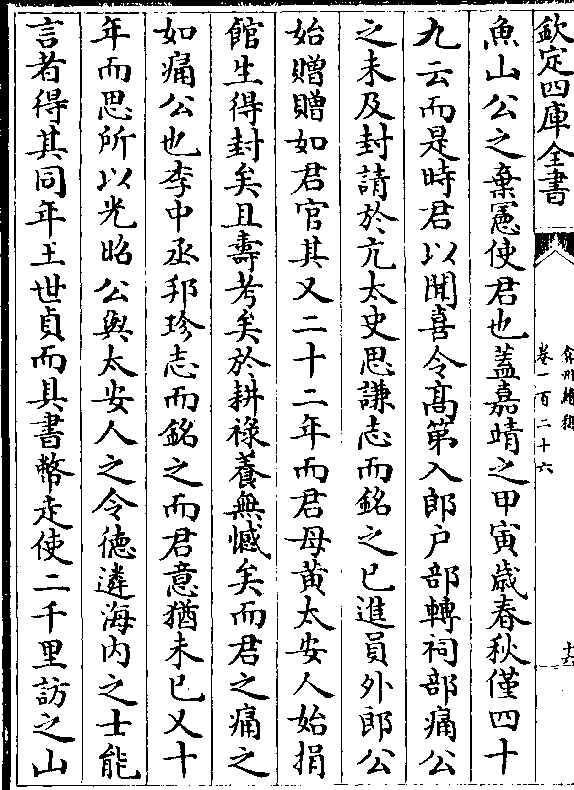 欽定四庫全書
弇州續稿
卷一百二十六
魚山公之棄憲使君也蓋嘉靖之甲寅歲春秋僅四十
九云而是時君以聞喜令髙第入郎户部轉祠部痛公
之未及封請於亢太史思謙志而銘之已進員外郎公
始贈贈如君官其又二十二年而君母黄太安人始捐
館生得封矣且壽考矣於耕祿養無憾矣而君之痛之
如痛公也李中丞邦珍志而銘之而君意猶未已又十
年而思所以光昭公與太安人之令德遴海内之士能
言者得其同年王世貞而具書幣走使二千里訪之山